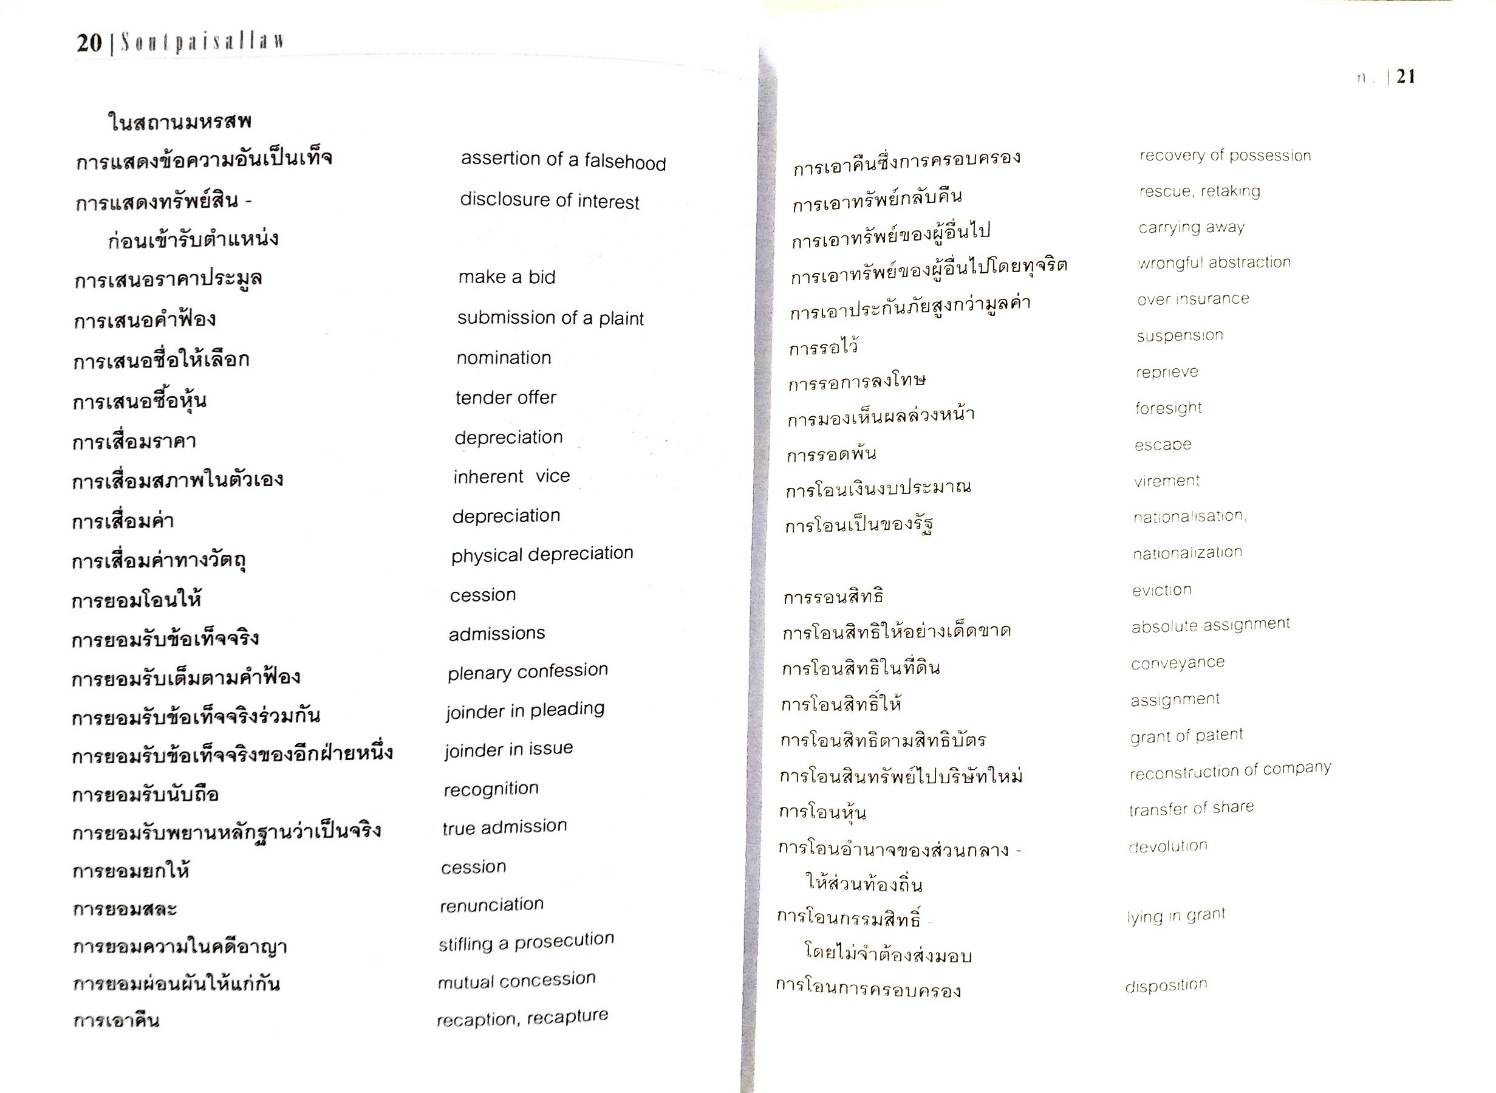 20 | Soutpaisallaw
ในสถานมหรสพ
การแสดงข้อความอันเป็นเท็จ assertion of a falsehood
การแสดงทรัพย์สิน - disclosure of interest
ก่อนเข้ารับตำแหน่ง
การเสนอราคาประมูล make a bid
การเสนอคำฟ้อง submission of a plaint
การเสนอชื่อให้เลือก nomination
การเสนอซื้อหุ้น tender offer
การเสื่อมราคา depreciation
การเสื่อมสภาพในตัวเอง inherent vice
การเสื่อมค่า depreciation
การเสื่อมค่าทางวัตถุ physical depreciation
การยอมโอนให้ cession
การยอมรับข้อเท็จจริง admissions
การยอมรับเต็มตามคำฟ้อง plenary confession
การยอมรับข้อเท็จจริงร่วมกัน joinder in pleading
การยอมรับข้อเท็จจริงของอีกฝ่ายหนึ่ง joinder in issue
การยอมรับนับถือ recognition
การยอมรับพยานหลักฐานว่าเป็นจริง true admission
การยอมยกให้ cession
การยอมสละ renunciation
การยอมความในคดีอาญา stifling a prosecution
การยอมผ่อนผันให้แก่กัน mutual concession
การเอาคืน recaption, recapture
ก. | 21
การเอาคืนซึ่งการครอบครอง recovery of possession
การเอาทรัพย์กลับคืน rescue, retaking
การเอาทรัพย์ของผู้อื่นไป carrying away
การเอาทรัพย์ของผู้อื่นไปโดยทุจริต wrongful abstraction
การเอาประกันภัยสูงกว่ามูลค่า over insurance
การรอไว้ suspension
การรอการลงโทษ reprieve
การมองเห็นผลล่วงหน้า foresight
การรอดพ้น escape
การโอนเงินงบประมาณ virement
การโอนเป็นของรัฐ nationalisation,
nationalization
การรอนสิทธิ eviction
การโอนสิทธิให้อย่างเด็ดขาด absolute assignment
การโอนสิทธิในที่ดิน conveyance
การโอนสิทธิ์ให้ assignment
การโอนสิทธิตามสิทธิบัตร grant of patent
การโอนสินทรัพย์ไปบริษัทใหม่ reconstruction of company
การโอนหุ้น transfer of share
การโอนอำนาจของส่วนกลาง - devolution
ให้ส่วนท้องถิ่น
การโอนกรรมสิทธิ์ - lying in grant
โดยไม่จำต้องส่งมอบ
การโอนการครอบครอง disposition